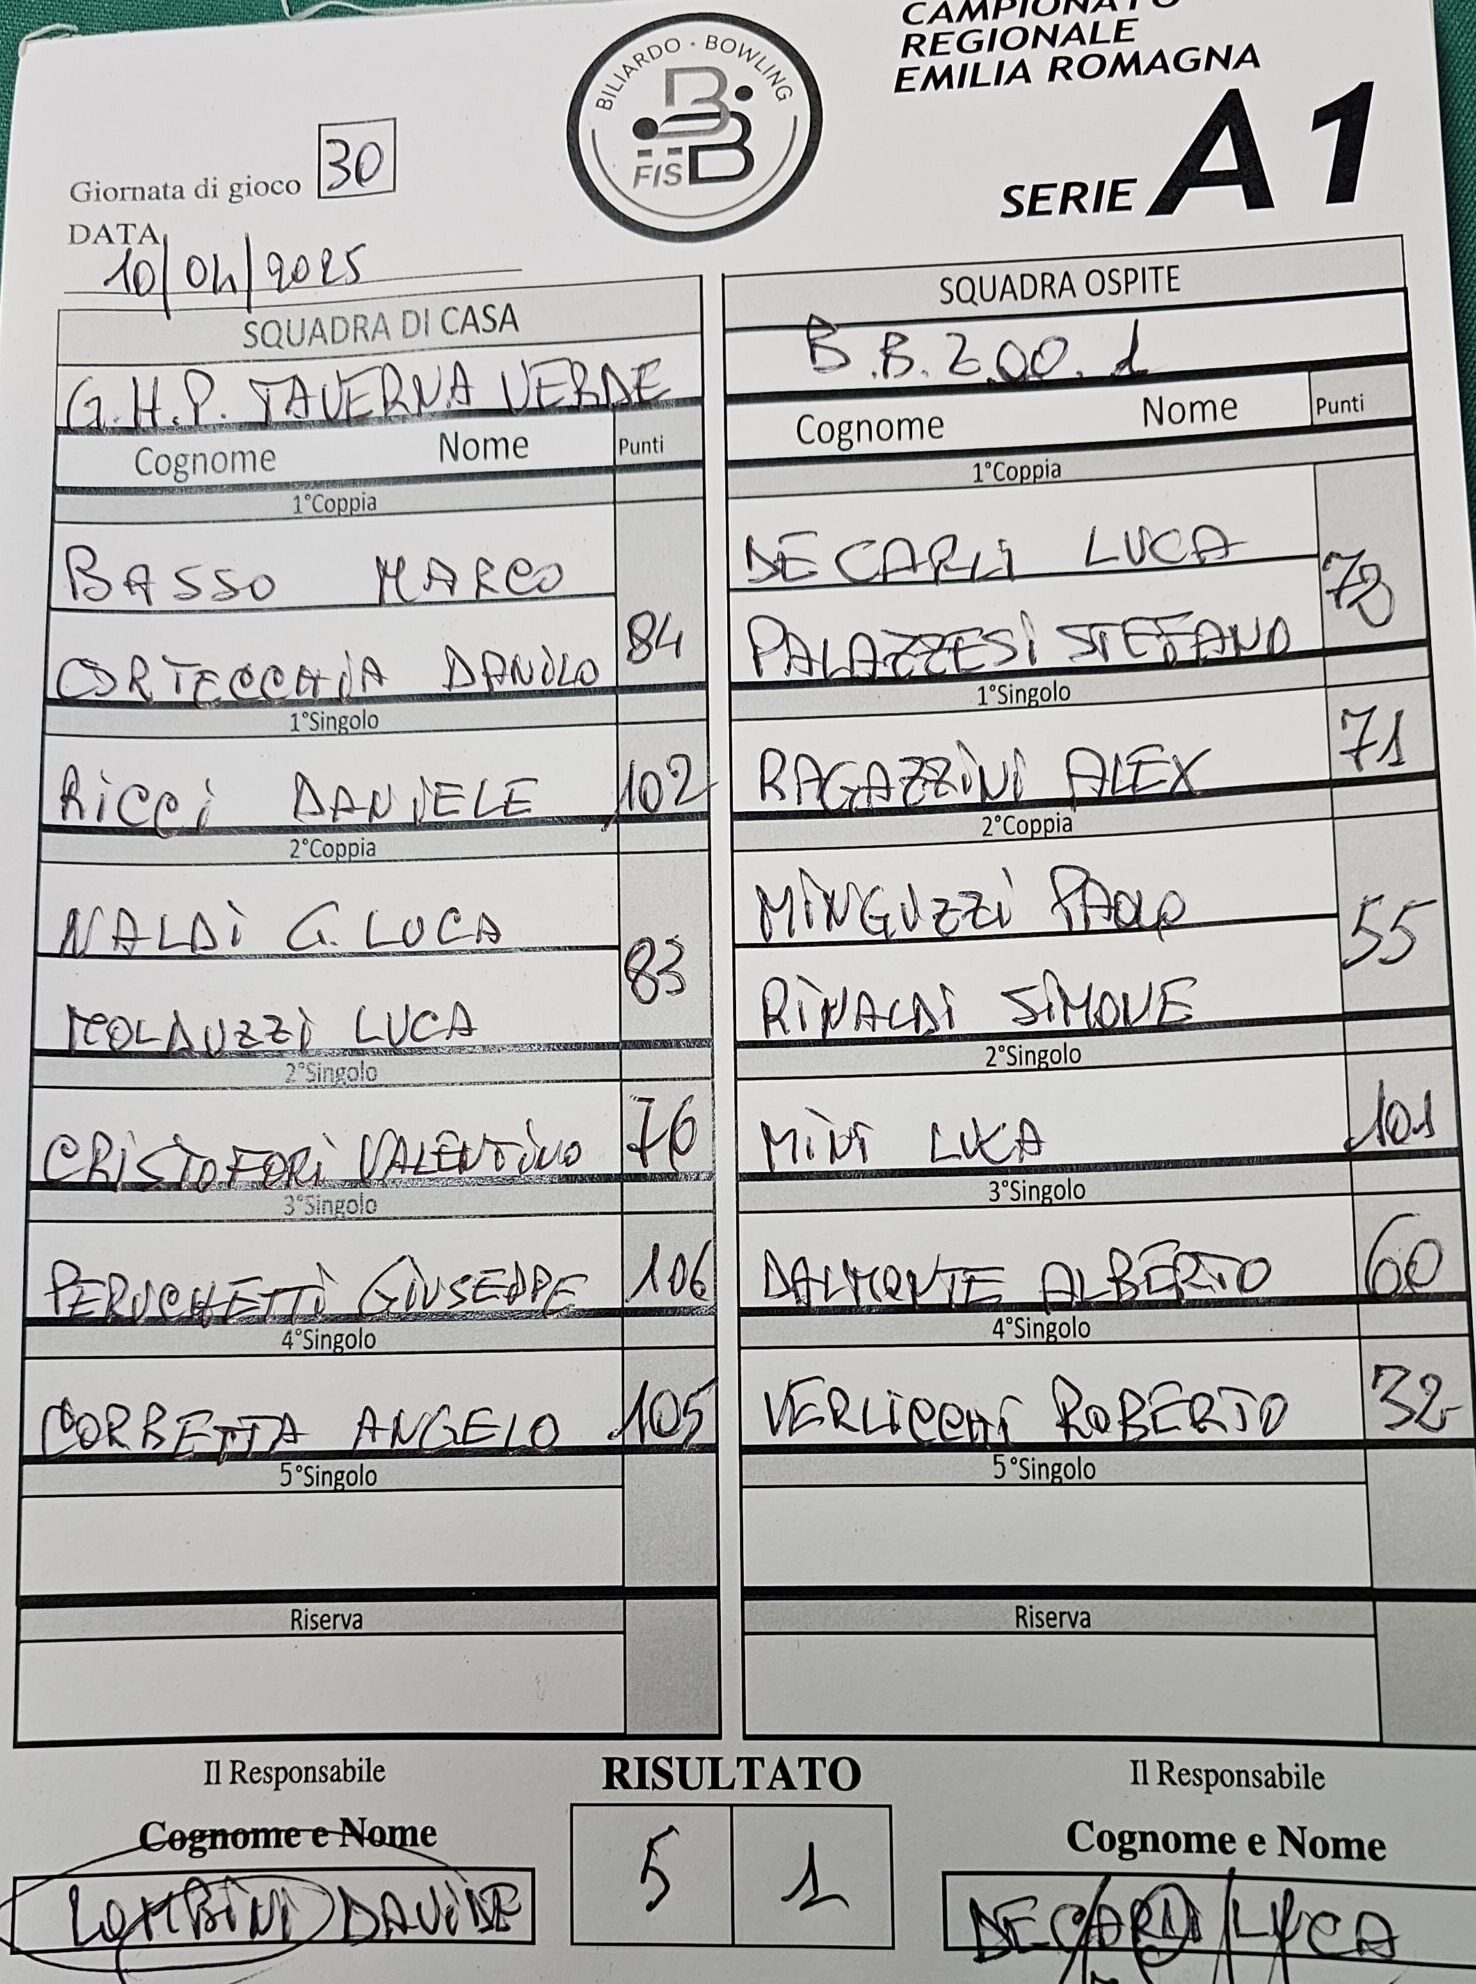 CAMPIONATO
REGIONALE
EMILIA ROMAGNA
SERIE A1
BILIARDO · BOWLING
FISBB
Giornata di gioco 30
DATA
10/04/2025
SQUADRA DI CASA
G.H.P. TAVERNA VERDE
Cognome Nome Punti
1°Coppia
BASSO MARCO
CORTECCHIA DANILO 84
1°Singolo
RICCI DANIELE 102
2°Coppia
NALDI G. LUCA
LUCA 83
2°Singolo
CRISTOFORI VALENTINO 76
3°Singolo
PERUCHETTI GIUSEPPE 106
4°Singolo
CORBETTA ANGELO 105
5°Singolo
Riserva
SQUADRA OSPITE
B.B.200.1
Cognome Nome Punti
1°Coppia
DECARLI LUCA
PALAZZESI STEFANO
1°Singolo
RAGAZZINI ALEX 71
2°Coppia
MINGUZZI PAOLO
RINALDI SIMONE 55
2°Singolo
MINI LUCA 101
3°Singolo
DALMONTE ALBERTO 60
4°Singolo
VERLICCHI ROBERTO 32
5°Singolo
Riserva
Il Responsabile
Cognome e Nome
LOMBINI DAVIDE
RISULTATO
5 1
Il Responsabile
Cognome e Nome
DECARLI LUCA